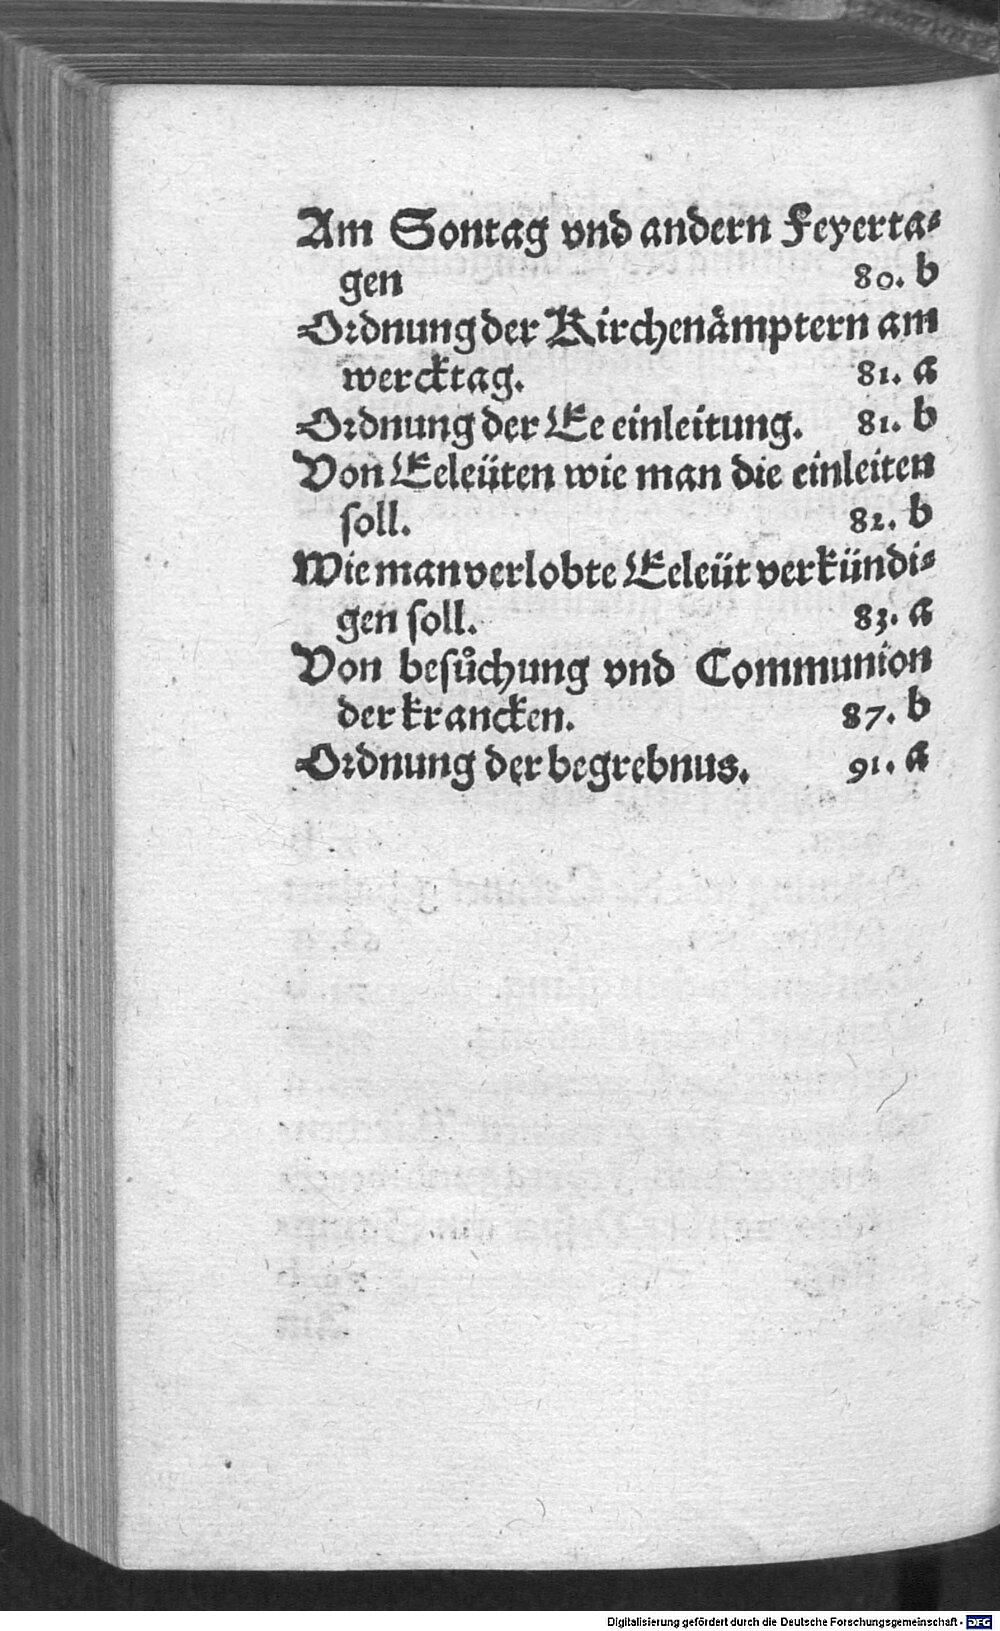 Am Sontag vnd andern Feyerta⸗
gen 80. b
Ordnung der Kirchenåmptern am
wercktag. 81. a
Ordnung der Ee einleitung. 81. b
Von Eeleüten wie man die einleiten
soll. 82. b
Wie man verlobte Eeleüt verkündi⸗
gen soll. 83. a
Von besůchung vnd Communion
der krancken. 87. b
Ordnung der begrebnus. 91. a
Digitalisierung gefördert durch die Deutsche Forschungsgemeinschaft - DFG